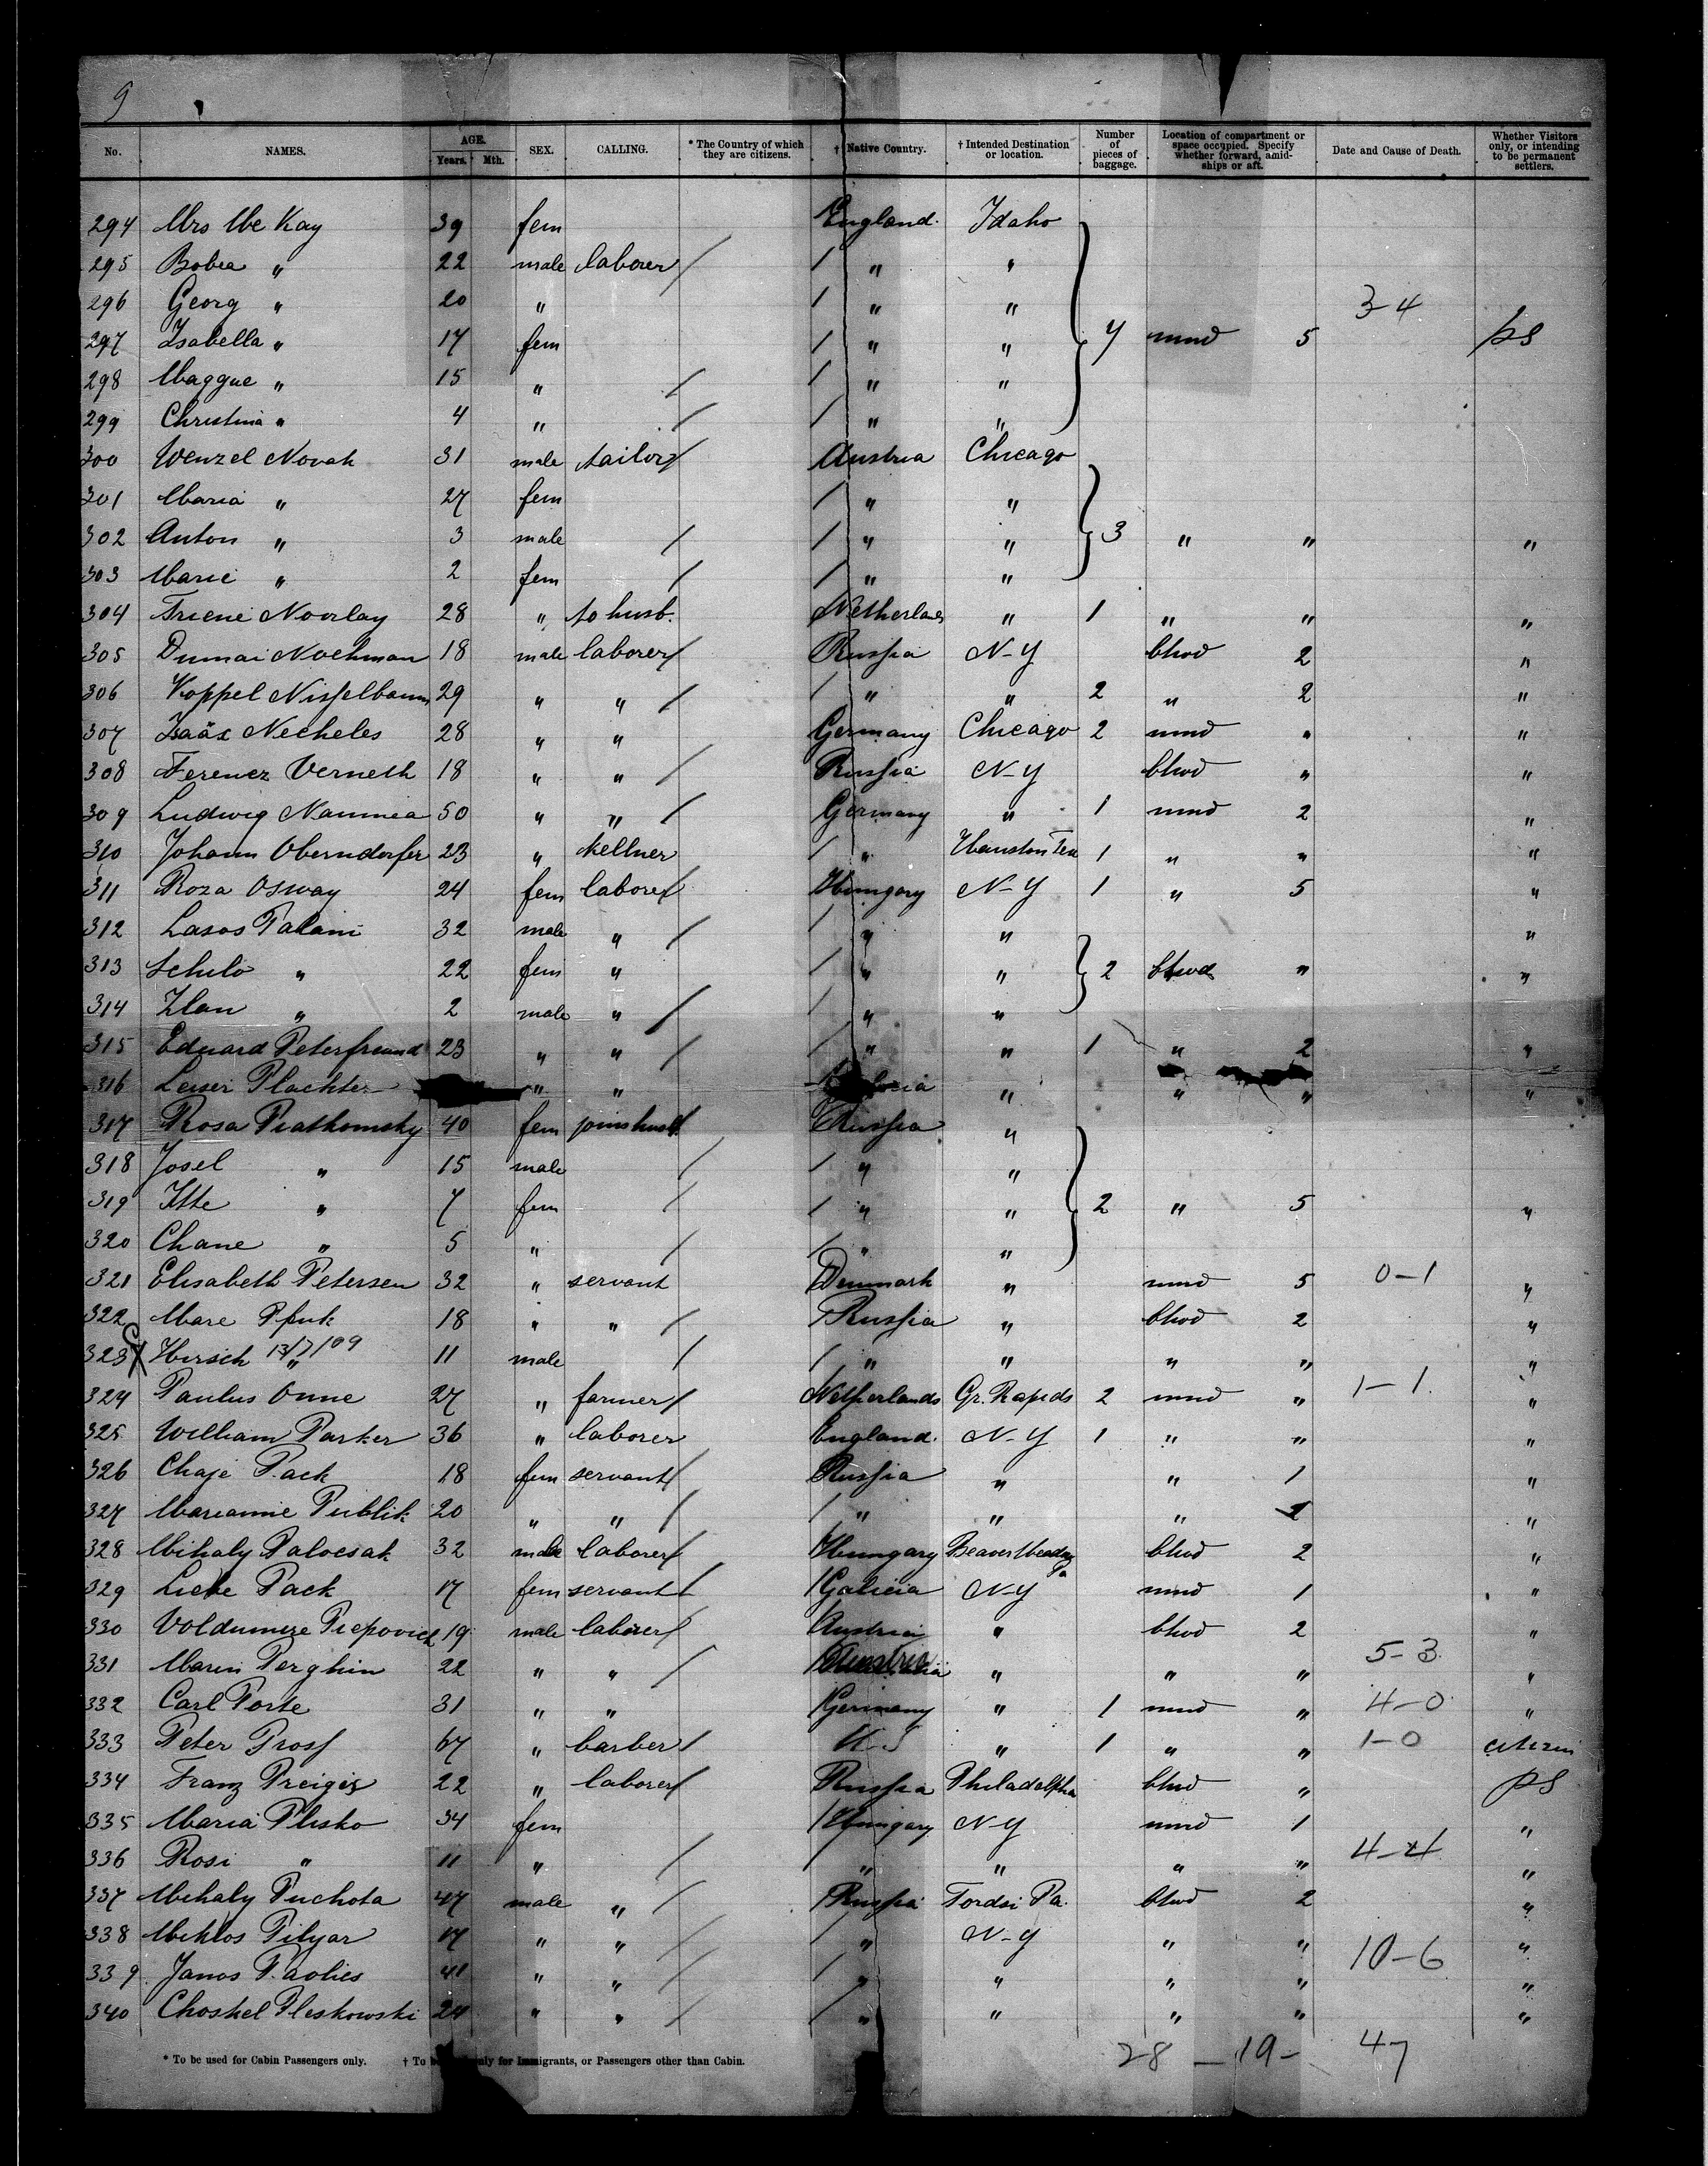 9
No. NAMES. AGE. Years. Mth. SEX. CALLING. * The Country of which they are citizens. † Native Country. † Intended Destination or location. Number of pieces of baggage. Location of compartment or space occupied. Specify whether forward, amidships or aft. Date and Cause of Death. Whether Visitors only, or intending to be permanent settlers.
294 Mrs Mc Kay 39 fem England. Idaho
295 " 22 male laborer / / " "
296 Georg " 20 " / " " 3-4
297 Isabella " 17 fem / " " 4 mmd 5 ps
298 " 15 " / / " "
299 Christina " 4 " / / " "
300 Wenzel Novak 31 male tailor / Austria Chicago
301 Maria " 27 fem / " "
302 Anton " 3 male / / " " 3 " " "
303 Marie " 2 fem / / " "
304 28 " to husb. Netherlands " 1 " " "
305 18 male laborer / Russia N-Y 2 "
306 Koppel Nisselbaum 29 " " / / " " 2 " 2 "
307 Necheles 28 " " Germany Chicago 2 mmd " "
308 Ferencz Verneth 18 " " / Russia N-Y " "
309 Ludwig 50 " " / Germany " 1 mmd 2 "
310 Johann Oberndorfer 23 " kellner / " Houston Tex 1 " " "
311 Roza Osway 24 fem laborer / Hungary N-Y 1 " 5 "
312 32 male " / / " " "
313 " 22 fem " / " " 2 " "
314 " 2 male " / / " "
315 Eduard Peterfreund 23 " " / / " " 1 " 2 "
316 Plachter " " " " " "
317 Rosa 40 fem Russia "
318 Josel " 15 male / / " "
319 Itte " 7 fem / / " " 2 " 5 "
320 Chane " 5 " / / " "
321 Elisabeth Petersen 32 " servant Denmark " mmd 5 0-1 "
322 18 " " / Russia " 2 "
323 Hirsch " 11 male / / " " " " "
324 Paulus Onne 27 " farmer / Netherlands Gr. Rapids 2 mmd " 1-1 "
325 William Parker 36 " laborer England. N-Y 1 " " "
326 Chaje Pack 18 fem servant / Russia " " 1 "
327 Marianne Publik 20 " " / / " " " "
328 Mihaly Palocsak 32 male laborer / Hungary Beaver Meadow Pa 2 "
329 Liebe Pack 17 fem servant / / Galicia N-Y mmd 1 "
330 19 male laborer / Austria " 2 "
331 22 " " / " " " 5-3 "
332 Carl Porte 31 " " / Germany " 1 mmd " 4-0 "
333 Peter 67 " barber / U.S " 1 " " 1-0 citizen
334 Franz 22 " laborer / Russia Philadelphia " ps
335 Maria Plisko 34 fem / Hungary N-Y mmd 1 "
336 Rosi " 11 " / / " " " " 4-4 "
337 Mihaly Puchota 47 male " / Russia Pa. 2 "
338 Miklos Pilyar 17 " " / / " N-Y " " "
339 Janos 41 " " / / " " " " 10-6 "
340 Choskel Pleskowski 24 " " / / " " " " "
* To be used for Cabin Passengers only. † To only for Immigrants, or Passengers other than Cabin.
28 - 19 - 47